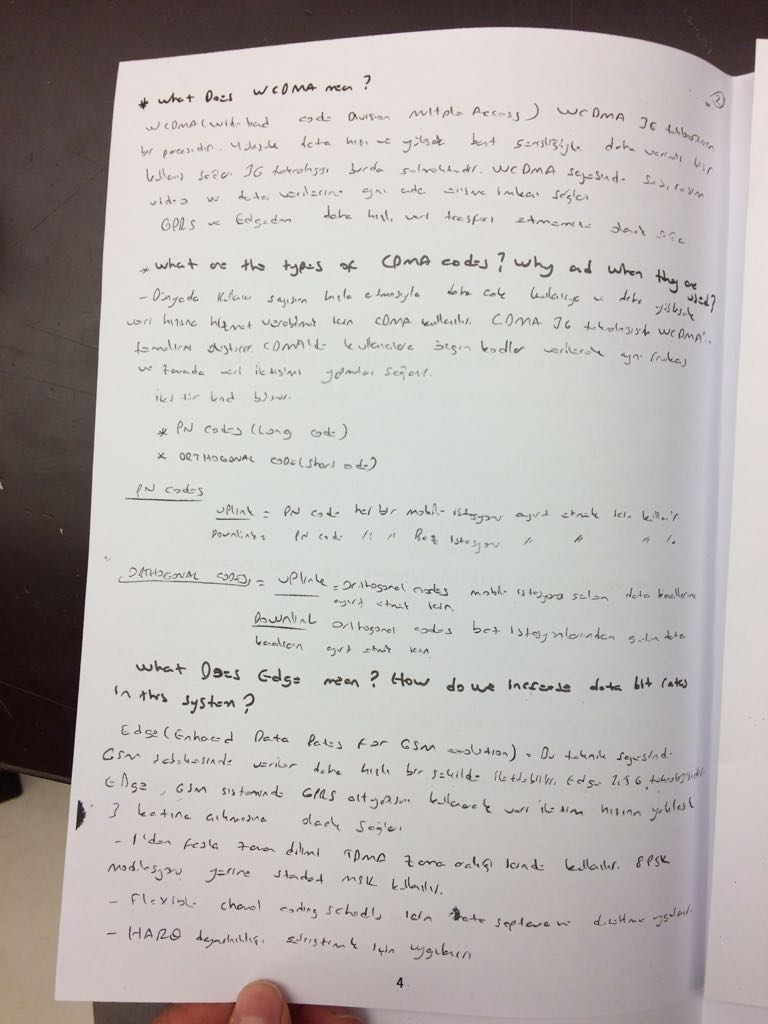 2
* What Does WCDMA mean?
WCDMA (Wideband code Division multiple Access) WCDMA 3G
bir parçasıdır. Yüksek data hızı ve yüksek bant genişliğiyle daha verimli bir
kullanış sağlar 3G teknolojisi burda WCDMA sayesinde ses, resim
video ve data verilerine aynı anda erişme imkanı sağlar
GPRS ve Edgeden daha hızlı veri transferi olanak
* What are the types of CDMA codes? Why and when they are used?
- Dünyada kullanıcı sayısının hızla artmasıyla daha çok kullanıcıya ve daha yüksek
veri hızına hizmet verebilmek için CDMA kullanılır. CDMA 3G teknolojisi WCDMA'in
temelini oluşturur. CDMA'de kullanıcılara özgün kodlar verilerek aynı frekans
ve zamanda veri iletişimi yapmaları sağlanır.
iki tür kod
* PN codes (Long code)
* ORTHOGONAL CODE (Short code)
PN codes
Uplink = PN code her bir mobile istasyonu ayırt etmek için kullanılır
Downlink = PN code " " Baz istasyonu " " " ".
ORTHOGONAL CODES = UPlink = Orthogonal codes mobile istasyona data kanallarını
ayırt etmek için.
Downlink Orthogonal codes baz istasyonlarından gelen data
kanallarını ayırt etmek için
What Does Edge mean? How do we increase data bit rates
in this system?
Edge (Enhanced Data Rates For GSM evolution) = Bu teknik sayesinde
GSM şebekesinde veriler daha hızlı bir şekilde iletilebilir. Edge 2.5G teknolojisidir
Edge, GSM sisteminde GPRS altyapısını kullanarak veri iletim hızının yaklaşık
3 katına çıkmasına olanak sağlar
- 1'den fazla zaman dilimi TDMA zaman aralığı içinde kullanılır. 8PSK
modülasyonu yerine standart MSK kullanılır.
- Flexible channel coding için
- HARQ için uygulanır
4